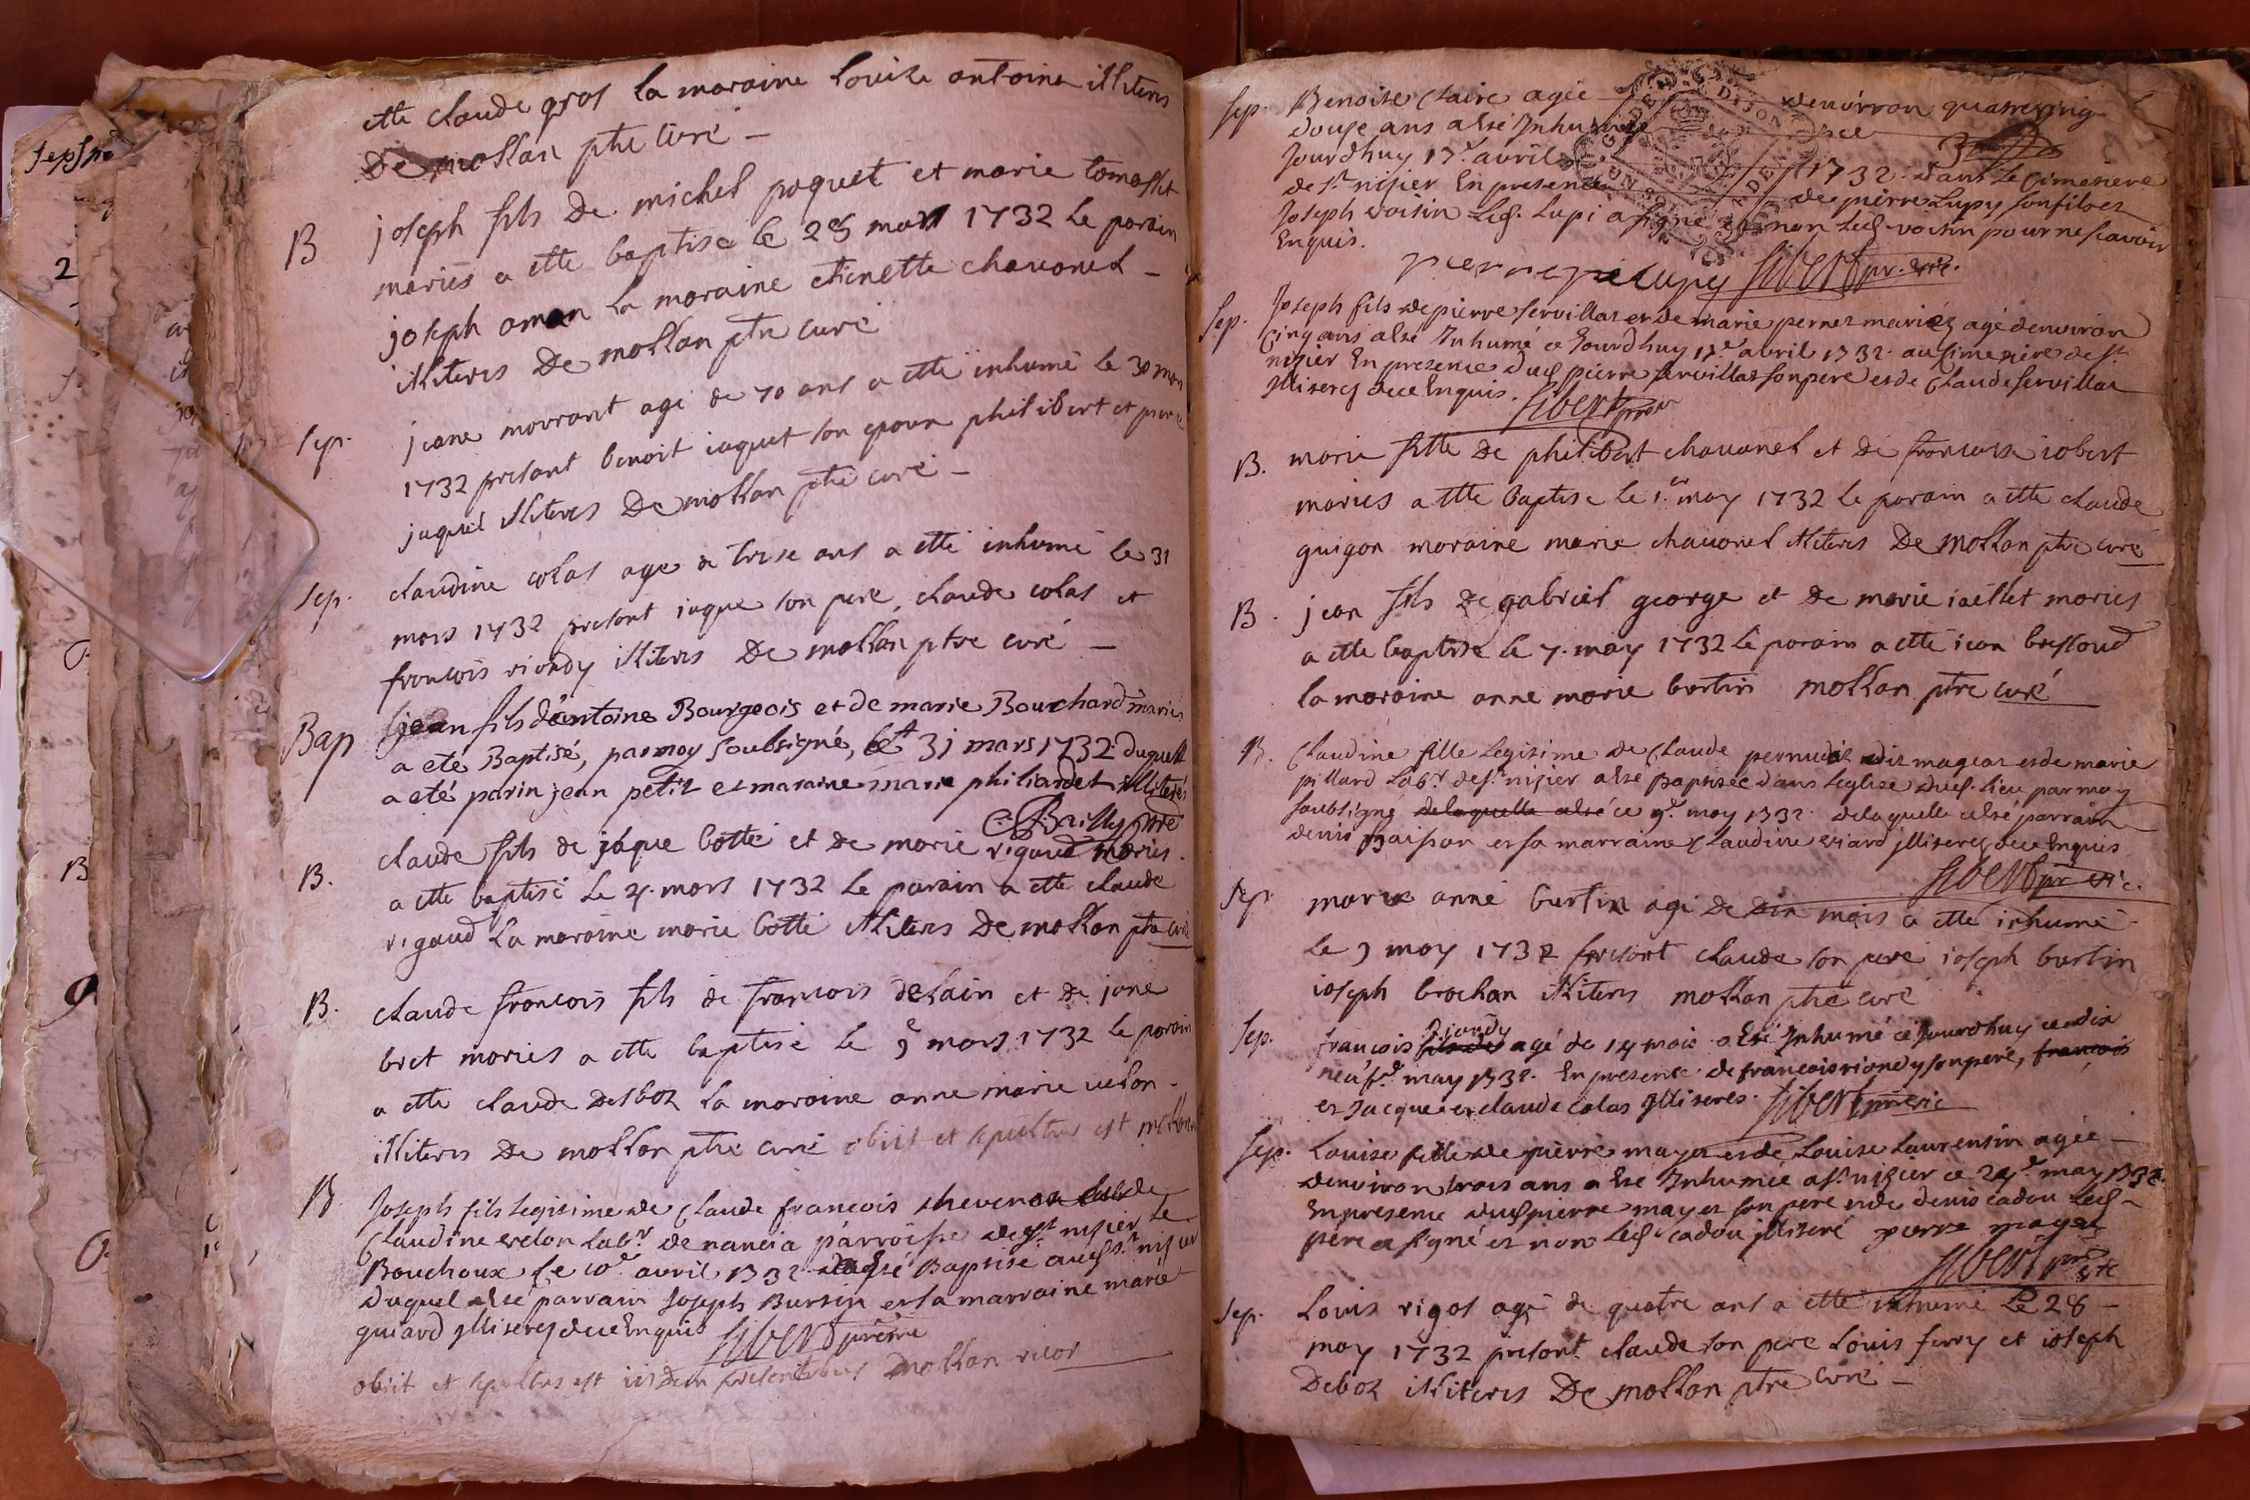 ette claude gros la maraine Louise antoine illiteres
De mollan ptre curé –
B joseph fils De michel poquet et marie tomasset
mariés a ette baptise le 28 mars 1732 le parain
joseph aman la maraine etienette chavanel –
illiteres De mollan ptre curé
sep. jeane mourant agé de 70 ans a etté inhumé le 30 mars
1732 presant benoit iaquet son epoux philibert et pierre
jaquet illiteres De mollan ptre curé –
sep. claudine colas agé de trese ans a etté inhumé le 31
mars 1732 presant iaque son pere, claude colas et
francois riondy illiteres De mollan ptre curé –
Bap jean fils d'antoine Bourgeois et de marie Bouchard mariés
a eté Baptisé, par moy soubsigné, le 31 mars 1732 duquel
a eté parin jean petit et maraine marie philiardet illiterés
Bailly ptre
B. claude fils de jaque botté et de marie rigaud mariés.
a ette baptisé le 4. mars 1732 le parain a ette claude
rigaud la maraine marie botté illiteres De mollan ptre curé
B. claude francois fils de francois delain et de jane
bret mariés a ette baptisé le 9 mars 1732 le parain
a ette claude Desboz la maraine anne marie velon –
illiteres De mollan ptre curé obiit et sepultus est mollan
B Joseph fils legitime de Claude francois thevenon
Claudine velon Labr. de nancia parroisse de st. nisier le
Bouchoux le 10e avril 1732 Baptisé aud st. nisier
Duquel a esté parrain Joseph Burtin et sa marraine marie
guiard jlliteres de ce Enquis Sibert pr vic
obiit et sepultus est iisdem presentibus mollan
sep. Benoite Claire agée denviron quatrevingt
douze ans a esté Inhumée ce
Jourdhuy 17e avril 1732. dans le Cimetiere
de st. nisier En presence de pierre Lupy son fils et
Joseph voisin Led. Lupi a signé et non Led. voisin pour ne scavoir
Enquis.
pierre Lupy Sibert pr. vic.
Sep. Joseph fils de pierre servillat et de marie pernet mariéz agé denviron
Cinq ans a esté Inhumé ce Jourdhuy 17e avril 1732. au simetière de st.
nisier En presence dud pierre servillat son pere et de Claude servillat
Jlliteres de ce Enquis. Sibert pr vic
B. marie fille De philibert chavanel et de francoise iobert
mariés a ette baptise le 1.er may 1732 le parain a ette claude
guigon maraine marie chavanel illiteres De mollan ptre curé
B. jean fils De gabriel george et De marie iaillet mariés
a ette baptise le 7. may 1732 le parain a etté ican
la maraine anne marie burtin mollan ptre curé
B. Claudine fille Legitime de Claude pernudet dit et de marie
pillard Labr. de st. nisier a esté Baptisée dans Leglise dud. Lieu par moy
soubsigné de laquelle a esté ce 9e. may 1732. de laquelle a esté parrain
denis Baisson et sa marraine Claudine viard jlliteres de ce Enquis
Sibert pr vic.
Sep. marie anne burtin agé De dix mois a ette inhumé
le 9 may 1732 presant claude son pere ioseph burtin
ioseph brochan illiteres mollan ptre curé
Sep. francois Riondy agé de 14 mois a esté Inhumé ce Jourdhuy ce dix
neuf.e may 1732. En presence de francois riondy son pere, francois
et Jacque et claude colas Jlliteres. Sibert pr vic
Sep. Louise fille de pierre mayet et de Louise Laurensin agée –
denviron trois ans a esté Inhumée a st. nisier ce 24e may 1732.
En presence dud pierre mayet son pere et de denis cadou Led –
père a signé et non Led cadou jlliteré pierre mayet
Sibert pr vic
Sep. Louis rigot agé de quatre ans a etté inhumé le 28 –
may 1732 presant claude son pere Louis ferry et ioseph
Deboz illiteres De mollan ptre curé –